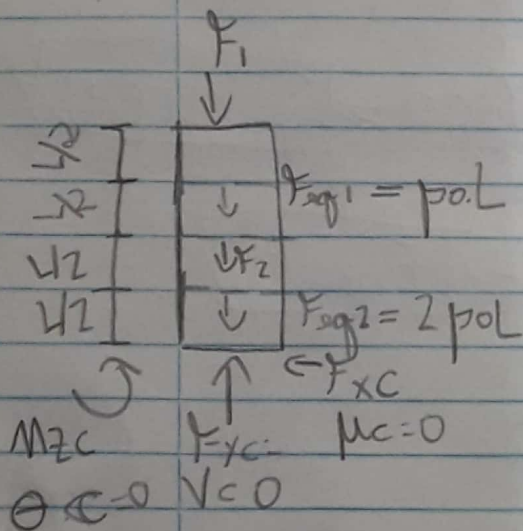 F₁
L/2
L/2
Feq1 = p0.L
L/2
F2
L/2
Feq2 = 2p0L
FxC
MZC
FyC=
μC=0
θC=0
VC0